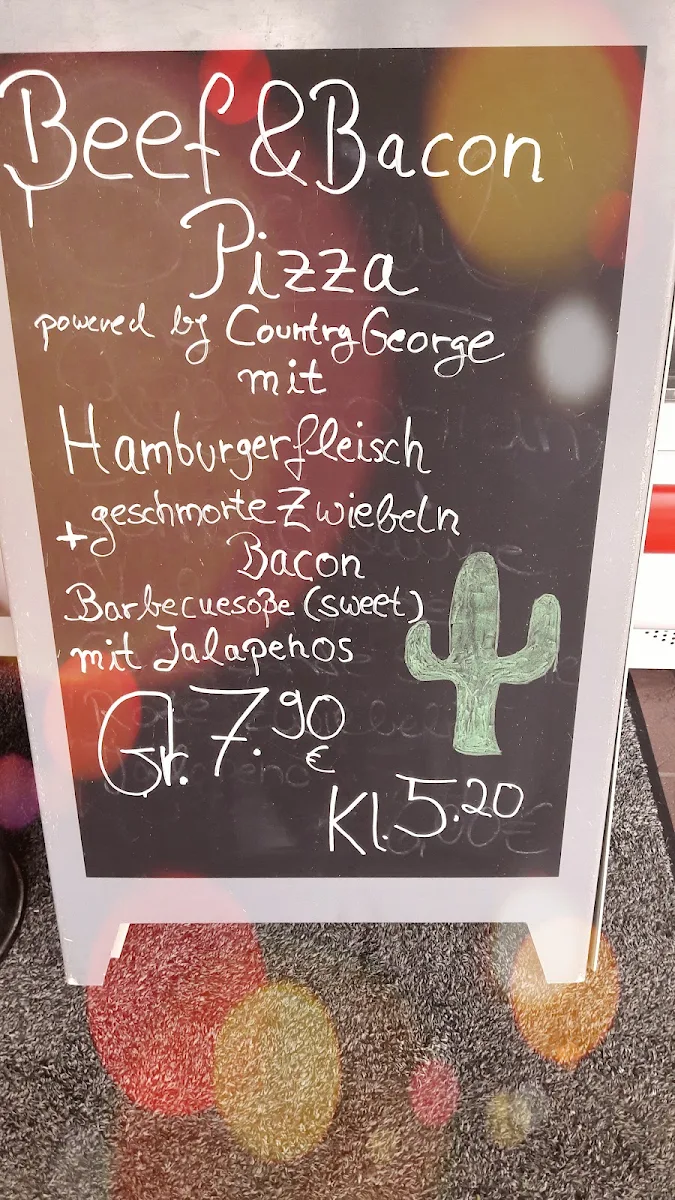 Beef & Bacon
Pizza
powered by Country George
mit
Hamburgerfleisch
+ geschmorte Zwiebeln
Bacon
Barbecuesoße (sweet)
mit Jalapenos
Gr. 7.90 €
Kl. 5.20